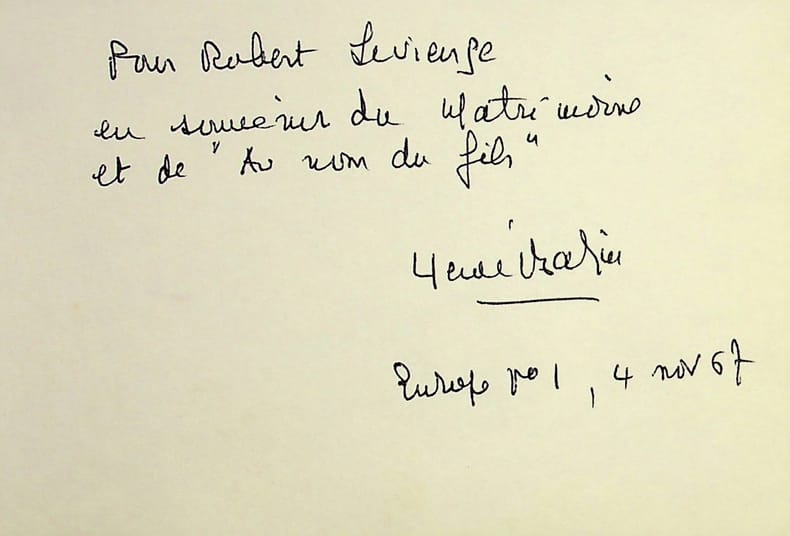 Pour Robert
en souvenir du Matrimoine
et de "Au nom du fils"
Hervé Bazin
Europe no 1, 4 nov 67